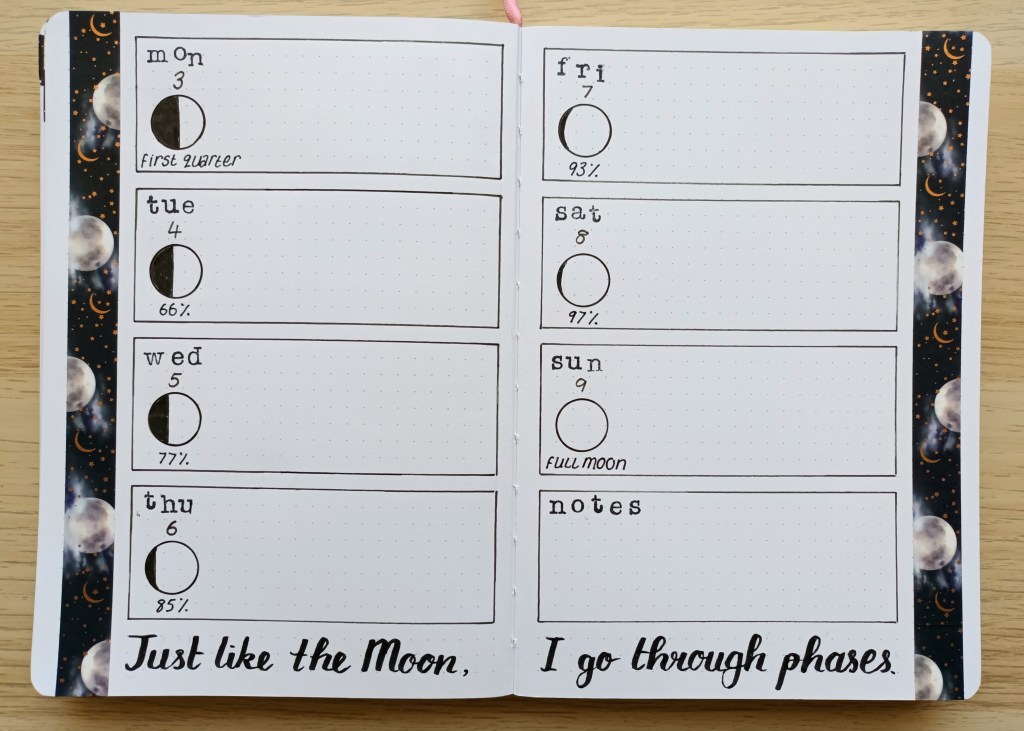 mon
3
first quarter
tue
4
66%
wed
5
77%
thu
6
85%
Just like the Moon,
fri
7
93%
sat
8
97%
sun
9
full moon
notes
I go through phases.